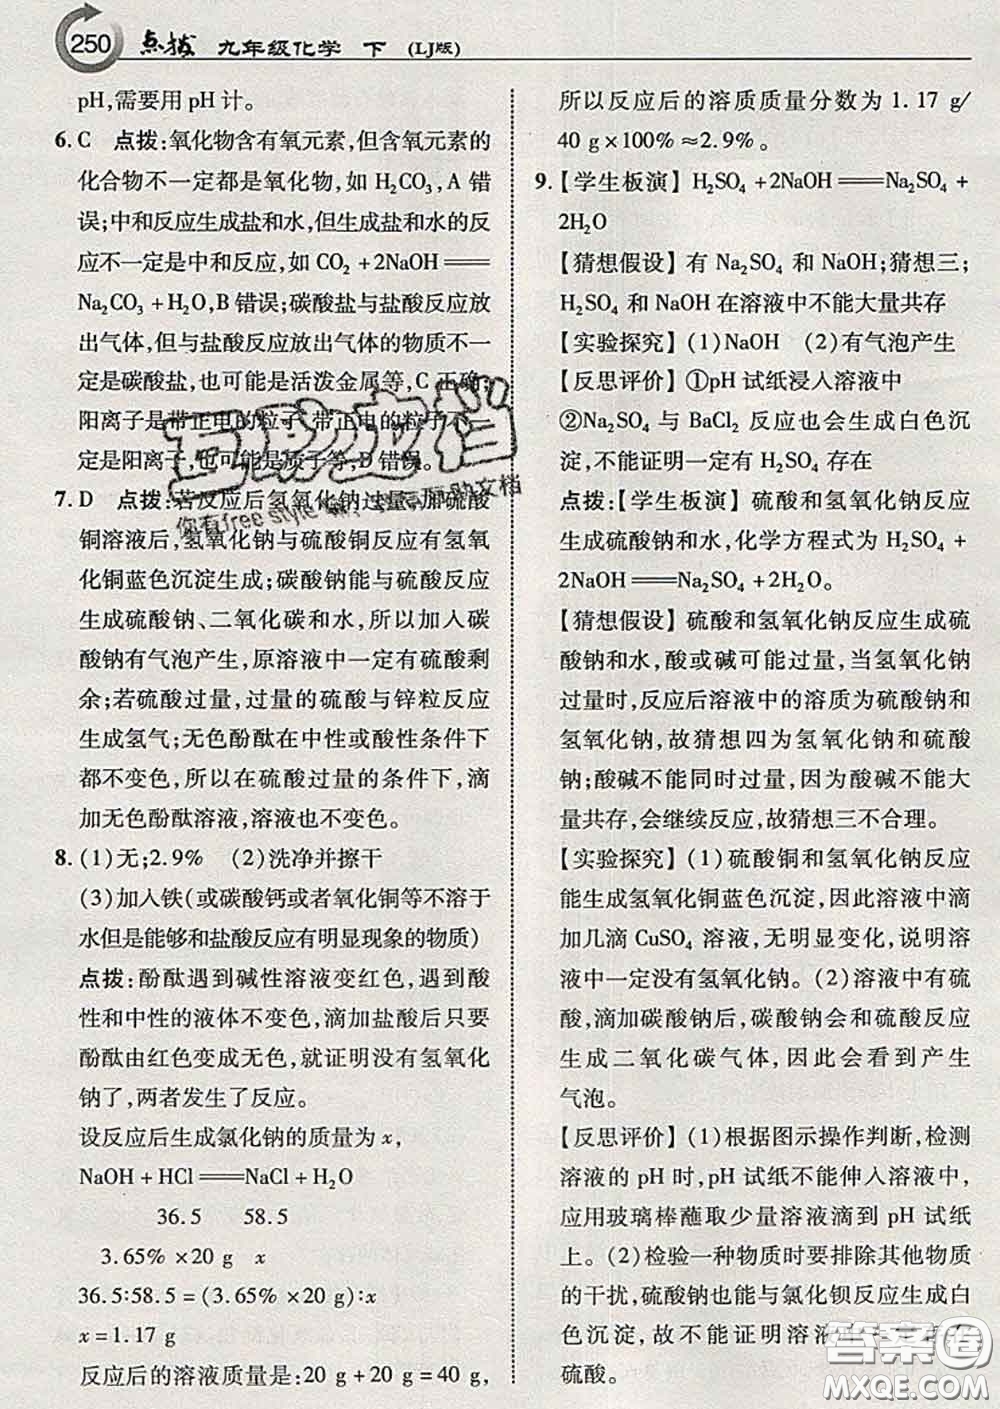 250 点拨 九年级化学 下 (LJ版)
pH,需要用 pH 计。
6. C 点拨:氧化物含有氧元素,但含氧元素的
化合物不一定都是氧化物,如 H₂CO₃,A 错
误;中和反应生成盐和水,但生成盐和水的反
应不一定是中和反应,如 CO₂ +2NaOH══
Na₂CO₃ +H₂O,B 错误;碳酸盐与盐酸反应放
出气体,但与盐酸反应放出气体的物质不一
定是碳酸盐,也可能是活泼金属等,C 正确;
阳离子是带正电的粒子,带正电的粒子不一
定是阳离子,也可能是质子等,D 错误。
7. D 点拨:若反应后氢氧化钠过量,加硫酸
铜溶液后,氢氧化钠与硫酸铜反应有氢氧
化铜蓝色沉淀生成;碳酸钠能与硫酸反应
生成硫酸钠、二氧化碳和水,所以加入碳
酸钠有气泡产生,原溶液中一定有硫酸剩
余;若硫酸过量,过量的硫酸与锌粒反应
生成氢气;无色酚酞在中性或酸性条件下
都不变色,所以在硫酸过量的条件下,滴
加无色酚酞溶液,溶液也不变色。
8. (1)无;2.9% (2)洗净并擦干
(3)加入铁(或碳酸钙或者氧化铜等不溶于
水但是能够和盐酸反应有明显现象的物质)
点拨:酚酞遇到碱性溶液变红色,遇到酸
性和中性的液体不变色,滴加盐酸后只要
酚酞由红色变成无色,就证明没有氢氧化
钠了,两者发生了反应。
设反应后生成氯化钠的质量为 x,
NaOH + HCl ══ NaCl + H₂O
36.5 58.5
3.65% ×20 g x
36.5:58.5=(3.65% ×20 g):x
x=1.17 g
反应后的溶液质量是:20 g+20 g=40 g,
所以反应后的溶质质量分数为 1. 17 g/
40 g×100% ≈2.9%。
9. 【学生板演】H₂SO₄ +2NaOH══Na₂SO₄ +
2H₂O
【猜想假设】有 Na₂SO₄ 和 NaOH;猜想三;
H₂SO₄ 和 NaOH 在溶液中不能大量共存
【实验探究】(1)NaOH (2)有气泡产生
【反思评价】①pH 试纸浸入溶液中
②Na₂SO₄ 与 BaCl₂ 反应也会生成白色沉
淀,不能证明一定有 H₂SO₄ 存在
点拨:【学生板演】硫酸和氢氧化钠反应
生成硫酸钠和水,化学方程式为 H₂SO₄ +
2NaOH══Na₂SO₄ +2H₂O。
【猜想假设】硫酸和氢氧化钠反应生成硫
酸钠和水,酸或碱可能过量,当氢氧化钠
过量时,反应后溶液中的溶质为硫酸钠和
氢氧化钠,故猜想四为氢氧化钠和硫酸
钠;酸碱不能同时过量,因为酸碱不能大
量共存,会继续反应,故猜想三不合理。
【实验探究】(1)硫酸铜和氢氧化钠反应
能生成氢氧化铜蓝色沉淀,因此溶液中滴
加几滴 CuSO₄ 溶液,无明显变化,说明溶
液中一定没有氢氧化钠。(2)溶液中有硫
酸,滴加碳酸钠后,碳酸钠会和硫酸反应
生成二氧化碳气体,因此会看到产生
气泡。
【反思评价】(1)根据图示操作判断,检测
溶液的 pH 时,pH 试纸不能伸入溶液中,
应用玻璃棒蘸取少量溶液滴到 pH 试纸
上。(2)检验一种物质时要排除其他物质
的干扰,硫酸钠也能与氯化钡反应生成白
色沉淀,故不能证明溶液中一定有
硫酸。
互助文档
答案圈
MXQE.COM